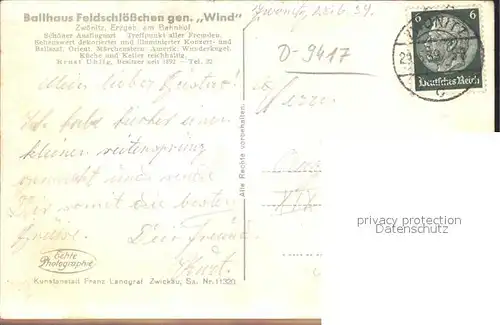 Ballhaus Feldschlößchen gen. „Wind"
Zwönitz, Erzgeb. am Bahnhof
Schöner Ausflugsort Treffpunkt aller Fremden.
Sehenswert dekorierter und illuminierter Konzert- und
Ballsaal. Orient. Märchenstern. Amerik. Wunderkugel.
Küche und Keller reichhaltig.
Ernst Uhlig, Besitzer seit 1892 - Tel. 32
Zwönitz,
D-9417
6 6
Deutsches Reich
Mein lieber Gustav!
Ich habe hierher einen
kleinen
gemacht und sende
Dir somit die besten
Grüsse. Dein Freund
Kurt.
Herrn
Alle Rechte vorbehalten.
XIX
privacy protection
Datenschutz
Echte
Photographie
Kunstanstalt Franz Landgraf Zwickau, Sa. Nr. 11320